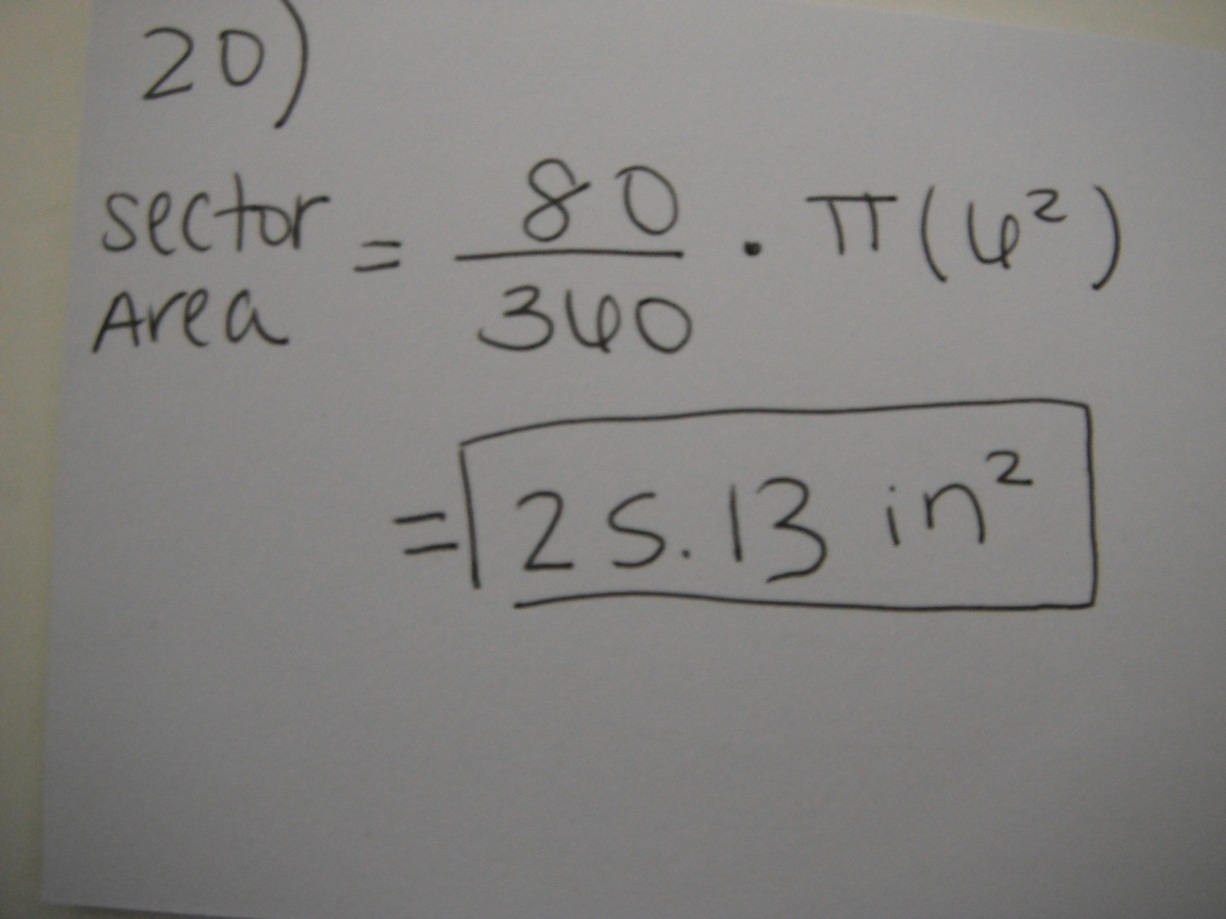 20)
sector Area = 80/360 · π(6²)
= 25.13 in²